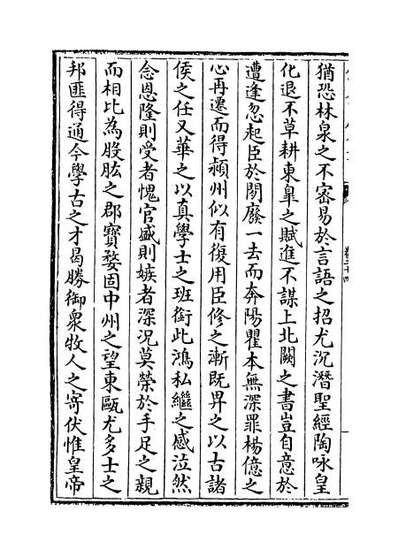 猶恐林泉之不審易於言語之招尤沉潛聖經陶咏皇
化退不草耕東臯之賦進不謀上北闕之書豈自意於
遭逢忽起臣於閒廢一去而奔陽瞿本無深罪楊億之
心再遷而得潁州似有復用臣修之漸既畀之以古諸
侯之任又華之以真學士之班銜此鴻私繼之感泣然
念恩隆則受者愧官盛則嫉者深況莫榮於手足之親
而相比為股肱之郡寶婺固中州之望東甌尤多士之
邦匪得通今學古之才曷勝御衆牧人之寄伏惟皇帝